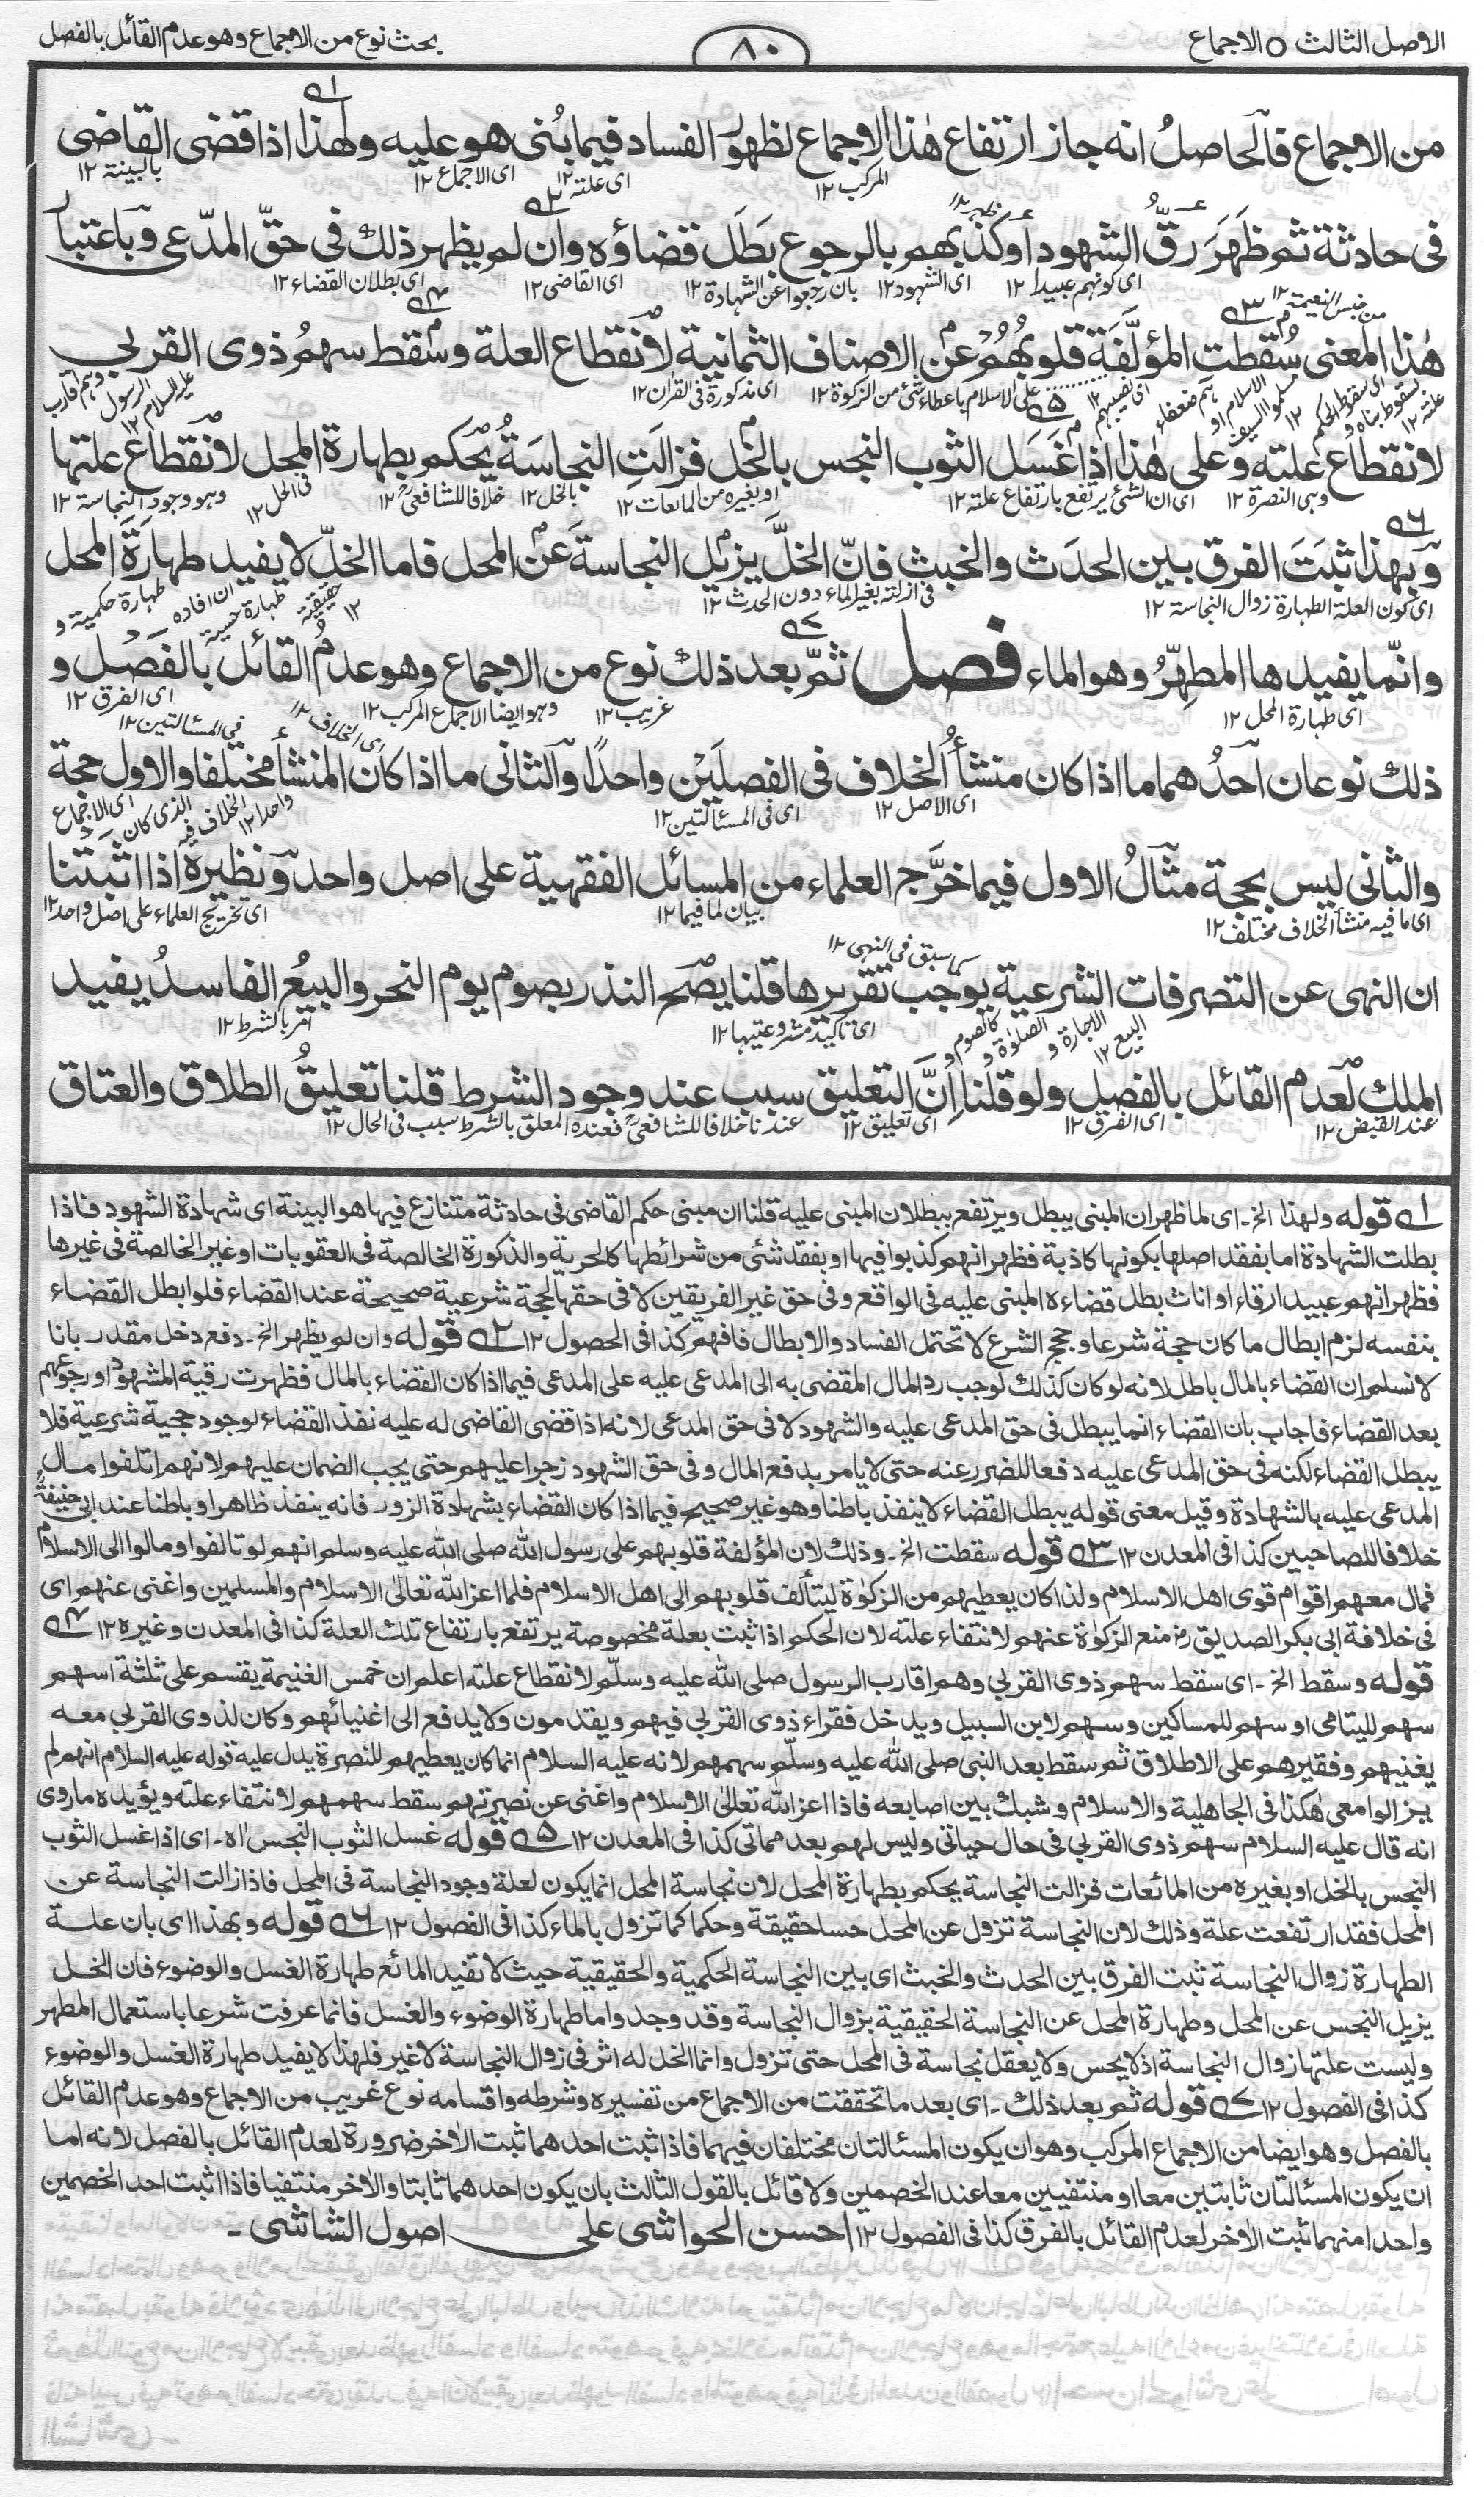 الاصل الثالث ○ الاجماع
٨٠
بحث نوع من الاجماع وهو عدم القائل بالفصل
من الاجماع فالحاصلُ انه جاز ارتفاع هٰذا الاجماع لظهور الفساد فيما بُنى هو عليه ولهٰذا اذا قضى القاضى
المركب ١٢ اى علته ١٢ اى الاجماع ١٢ بالبينة ١٢
فى حادثة ثم ظَهَرَ رقُّ الشهود اَو كذبهم بالرجوع بَطَل قضاؤه وان لم يظهر ذلك فى حقّ المدّعى وباعتبار
اى كونهم عبيدا ١٢ اى الشهود ١٢ بان رجعوا عن الشهادة ١٢ اى القاضى ١٢ اى بطلان القضاء ١٢
هٰذا المعنى سُقطت المؤلَّفَة قلوبهُم عن الاصناف الثمانية لانقطاع العلة وسَقط سهمُ ذوى القربى
على الاسلام باعطاء شئ من الزكوة ١٢ اى مذكورة فى القراٰن ١٢
لانقطاع علته وعلى هٰذا اذا غَسَل الثوب النجس بالخل فزالَتِ النجاسَةُ يحكم بطهارة المحل لانقطاع علتها
وهى النصرة ١٢ اى ان الشئ يرتفع بارتفاع علته ١٢ او بغيره من المائعات ١٢ بالخل ١٢ خلافا للشافعىؒ ١٢ فى الحل ١٢ وهو وجود النجاسة ١٢
وبهذا ثبَتَ الفرق بين الحدَث والخبث فانّ الخلَّ يزيل النجاسةَ عن المحل فاما الخلّ لا يفيد طهارَةَ المحل
اى كون العلة الطهارة زوال النجاسة ١٢ فى ازالته بغير الماء دون الحدث ١٢
وانّما يفيدها المطهِّرُ وهو الماء فصل ثمّ بعد ذلك نوع من الاجماع وهو عدمُ القائل بالفَصل و
اى طهارة المحل ١٢ غريب ١٢ وهو ايضا الاجماع المركب ١٢ اى الفرق ١٢
فى المسئالتين ١٢ اى الخلاف ١٢
ذلك نوعان اَحدُهما ما اذا كان منشأُ الخلاف فى الفصلَيْن واحدًا والثانى ما اذا كان المنشأُ مختلفا والاول حجة
اى الاصل ١٢ اى فى المسئالتين ١٢
والثانى ليس بحجة مثالُ الاول فيما خرَّج العلماء من المسائل الفقهية على اصل واحد ونظيرهُ اذا اثبَتنا
اى ما فيه منشأ الخلاف مختلف ١٢ بيان لما فيما ١٢ اى تخريج العلماء على اصل واحد ١٢
كما سبق فى النهى ١٢
ان النهى عن التصرفات الشرعية يوجب تقريرها قلنا يصح النذر بصوم يوم النحر والبيعُ الفاسدُ يفيد
اى تاكيد مشروعتيها ١٢ امر بالشرط ١٢
الملك لعدم القائل بالفصل ولو قلنا اِنَّ التعليق سبب عند وجود الشرط قلنا تعليقُ الطلاق والعتاق
عند القبض ١٢ اى الفرق ١٢ اى تعليق ١٢ عندنا خلافا للشافعىؒ فعنده المعلق بالشرط سبب فى الحال ١٢
١ قوله ولهذا الخ۔ اى لما ظهر ان المبنى يبطل ويرتفع ببطلان المبنى عليه قلنا ان مبنى حكم القاضى فى حادثة متنازع فيها هو البينة اى شهادة الشهود فاذا
بطلت الشهادة اما بفقد اصلها بكونها كاذبة فظهر انهم كذبوا فيها او بفقد شئى من شرائطها كالحرية والذكورة الخالصة فى العقوبات او غير الخالصة فى غيرها
فظهر انهم عبيد ارقاء او اناث بطل قضاءه المبنى عليه فى الواقع وفى حق غير الفريقين لا فى حقها لحجة شرعية صحيحة عند القضاء فلو ابطل القضاء
بنفسه لزم ابطال ما كان حجة شرعا وحجج الشرع لا تحتمل الفساد والابطال فافهم كذا فى الحصول ١٢ ٢ قوله وان لم يظهر الخ۔ دفع دخل مقدر بانا
لا نسلم ان القضاء بالمال باطل لانه لو كان كذلك لوجب رد المال المقضى به الى المدعى عليه على المدعى فيما اذا كان القضاء بالمال فظهرت رقية المشهود او رجوعهم
بعد القضاء فاجاب بان القضاء انما يبطل فى حق المدعى عليه والشهود لا فى حق المدعى لانه اذا قضى القاضى له عليه نفذ القضاء لوجود حجية شرعية فلا
يبطل القضاء لكنه فى حق المدعى عليه دفعا للضرر عنه حتى لا يامر بدفع المال وفى حق الشهود زجرا عليهم حتى يجب الضمان عليهم لانهم اتلفوا مال
المدعى عليه بالشهادة وقيل معنى قوله يبطل القضاء لا ينفذ باطنا وهو غير صحيح فيما اذا كان القضاء بشهادة الزور فانه ينفذ ظاهرا وباطنا عند ابى حنيفةؒ
خلافا للصاحبين كذا فى المعدن ١٢ ٣ قوله سقطت الخ۔ وذلك لان المؤلفة قلوبهم على رسول الله صلى الله عليه وسلم انهم لو تالفوا ومالوا الى الاسلام
فمال معهم اقوام قوى اهل الاسلام ولذا كان يعطيهم من الزكوٰة ليتألف قلوبهم الى اهل الاسلام فلما اعز الله تعالىٰ الاسلام والمسلمين واغنى عنهم اى
فى خلافة ابى بكر الصديق رض منع الزكوٰة عنهم لانتفاء علته لان الحكم اذا ثبت بعلة مخصوصة يرتفع بارتفاع تلك العلة كذا فى المعدن وغيره ١٢ ٤
قوله وسقط الخ۔ اى سقط سهم ذوى القربى وهم اقارب الرسول صلى الله عليه وسلّم لانقطاع علته اعلم ان خمس الغنيمة يقسم على ثلثة اسهم
سهم لليتامى او سهم للمساكين وسهم لابن السبيل ويدخل فقراء ذوى القربى فيهم ويقدمون ولا يدفع الى اغنيائهم وكان لذوى القربى معه
يغنيهم وفقيرهم على الاطلاق ثم سقط بعد النبى صلى الله عليه وسلّم سهمهم لانه عليه السلام انما كان يعطيهم للنصرة يدل عليه قوله عليه السلام انهم لم
يزالوا معى هٰكذا فى الجاهلية والاسلام وشبك بين اصابعه فاذا اعز الله تعالىٰ الاسلام واغنى عن نصرتهم سقط سهمهم لانتفاء علته ويؤيده ما روى
انه قال عليه السلام سهم ذوى القربى فى حال حياتى وليس لهم بعد مماتى كذا فى المعدن ١٢ ٥ قوله غسل الثوب النجس اه۔ اى اذا غسل الثوب
النجس بالخل او بغيره من المائعات فزالت النجاسة يحكم بطهارة المحل لان نجاسة المحل انما يكون لعلة وجود النجاسة فى المحل فاذا زالت النجاسة عن
المحل فقد ارتفعت علة وذلك لان النجاسة تزول عن المحل حسا حقيقة وحكما كما تزول بالماء كذا فى الفصول ١٢ ٦ قوله وبهذا اى بان علة
الطهارة زوال النجاسة ثبت الفرق بين الحدث والخبث اى بين النجاسة الحكمية والحقيقية حيث لا تفيد المائع طهارة الغسل والوضوء فان الخل
يزيل النجس عن المحل وطهارة المحل عن النجاسة الحقيقية بزوال النجاسة وقد وجد واما طهارة الوضوء والغسل فانما عرفت شرعا باستعمال المطهر
وليست علتها زوال النجاسة اذ لا يحس ولا يعقل نجاسة فى المحل حتى تزول وانما الخل له اثر فى زوال النجاسة لا غير فلهذا لا يفيد طهارة الغسل والوضوء
كذا فى الفصول ١٢ ٧ قوله ثم بعد ذلك۔ اى بعد ما تحققت من الاجماع من تفسيره وشرطه واقسامه نوع غريب من الاجماع وهو عدم القائل
بالفصل وهو ايضا من الاجماع المركب وهو ان يكون المسئالتان مختلفان فيهما فاذا ثبت احدهما ثبت الاٰخر ضرورة لعدم القائل بالفصل لانه اما
ان يكون المسئالتان ثابتين معا او منتفيين معا عند الخصمين ولا قائل بالقول الثالث بان يكون احدهما ثابتا والاٰخر منتفيا فاذا اثبت احد الخصمين
واحدا منهما ثبت الاٰخر لعدم القائل بالفرق كذا فى الفصول ١٢ احسن الحواشى على اصول الشاشى۔